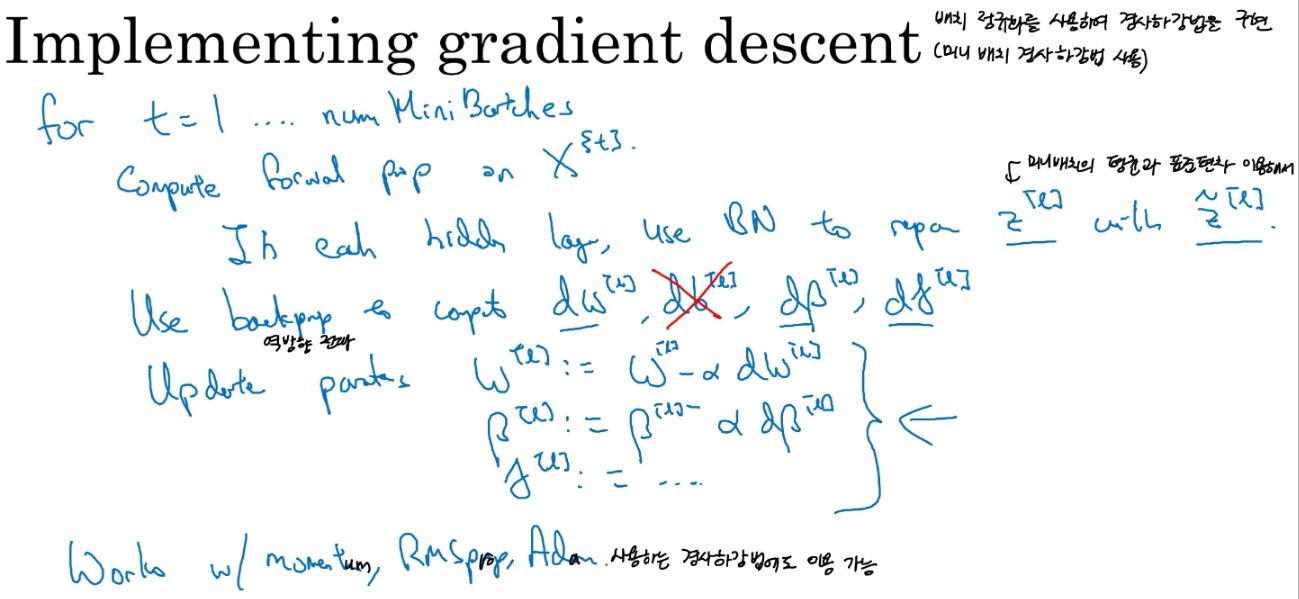 Implementing gradient descent
배치 정규화를 사용하여 경사하강법을 구현
(미니 배치 경사하강법 사용)
for t = 1 .... num Mini Batches
Compute forwal prop on X^{t}.
미니배치의 평균과 표준편차 이용해서
In each hidden lay, use BN to repan z^[l] with z̃^[l].
Use backprop to compt dw^[l], db^[l], dβ^[l], dγ^[l]
역방향 전파
Update parates W^[l] := W^[l] - α dW^[l]
β^[l] := β^[l] - α dβ^[l]
γ^[l] := ....
Works w/ momentum, RMSprop, Adam. 사용하는 경사하강법에도 이용 가능